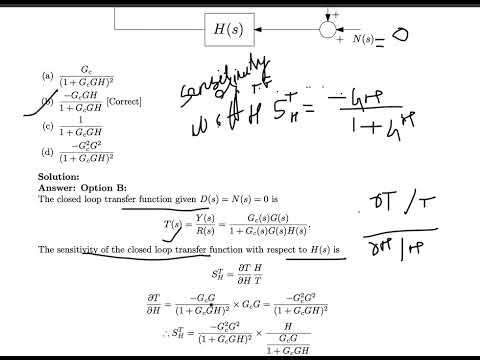 H(s)
+
+
N(s) = 0
(a) G_c / (1 + G_cGH)^2
(b) −G_cGH / (1 + G_cGH) [Correct]
(c) 1 / (1 + G_cGH)
(d) −G_c^2G^2 / (1 + G_cGH)^2
sensitivity
of T.F
w.s.t H S_H^T = −GH / (1 + GH)
Solution:
Answer: Option B:
The closed loop transfer function given D(s) = N(s) = 0 is
T(s) = Y(s)/R(s) = G_c(s)G(s) / (1 + G_c(s)G(s)H(s)).
∂T / T
∂H / H
The sensitivity of the closed loop transfer function with respect to H(s) is
S_H^T = ∂T/∂H H/T
∂T/∂H = −G_cG / (1 + G_cGH)^2 × G_cG = −G_c^2G^2 / (1 + G_cGH)^2
∴ S_H^T = −G_c^2G^2 / (1 + G_cGH)^2 × H / (G_cG / (1 + G_cGH))